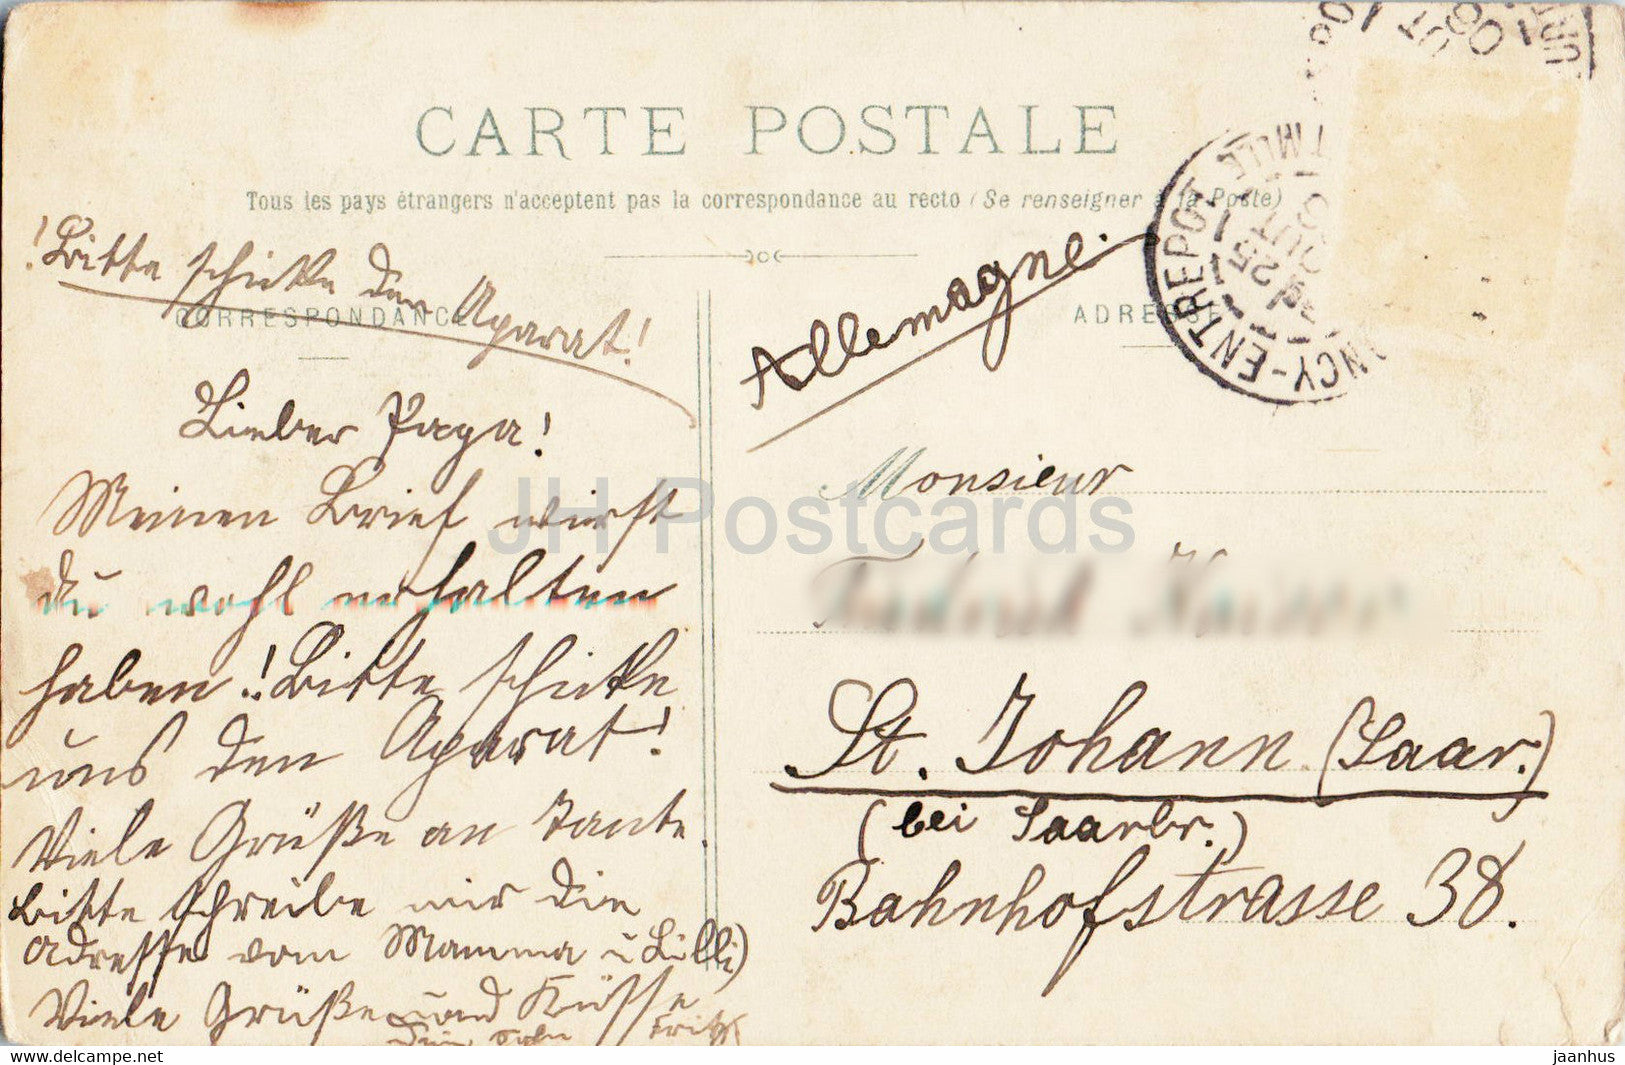 CARTE POSTALE
Tous les pays étrangers n'acceptent pas la correspondance au recto (Se renseigner à la Poste)
CORRESPONDANCE
ADRESSE
! Bitte schicke den Aparat!
Lieber Papa!
Meinen Brief wirst
du wohl erhalten
haben! Bitte schicke
uns den Aparat!
Viele Grüße an Tante.
Bitte schreibe mir die
Adresse vom Mamma u Lilli)
Viele Grüße und Küsse
Dein Sohn Fritz
Allemagne.
Monsieur
St. Johann (Saar.)
(bei Saarbr.)
Bahnhofstrasse 38.
NCY-ENTREPOT
25
JH Postcards
hippostcard.com
jaanhus